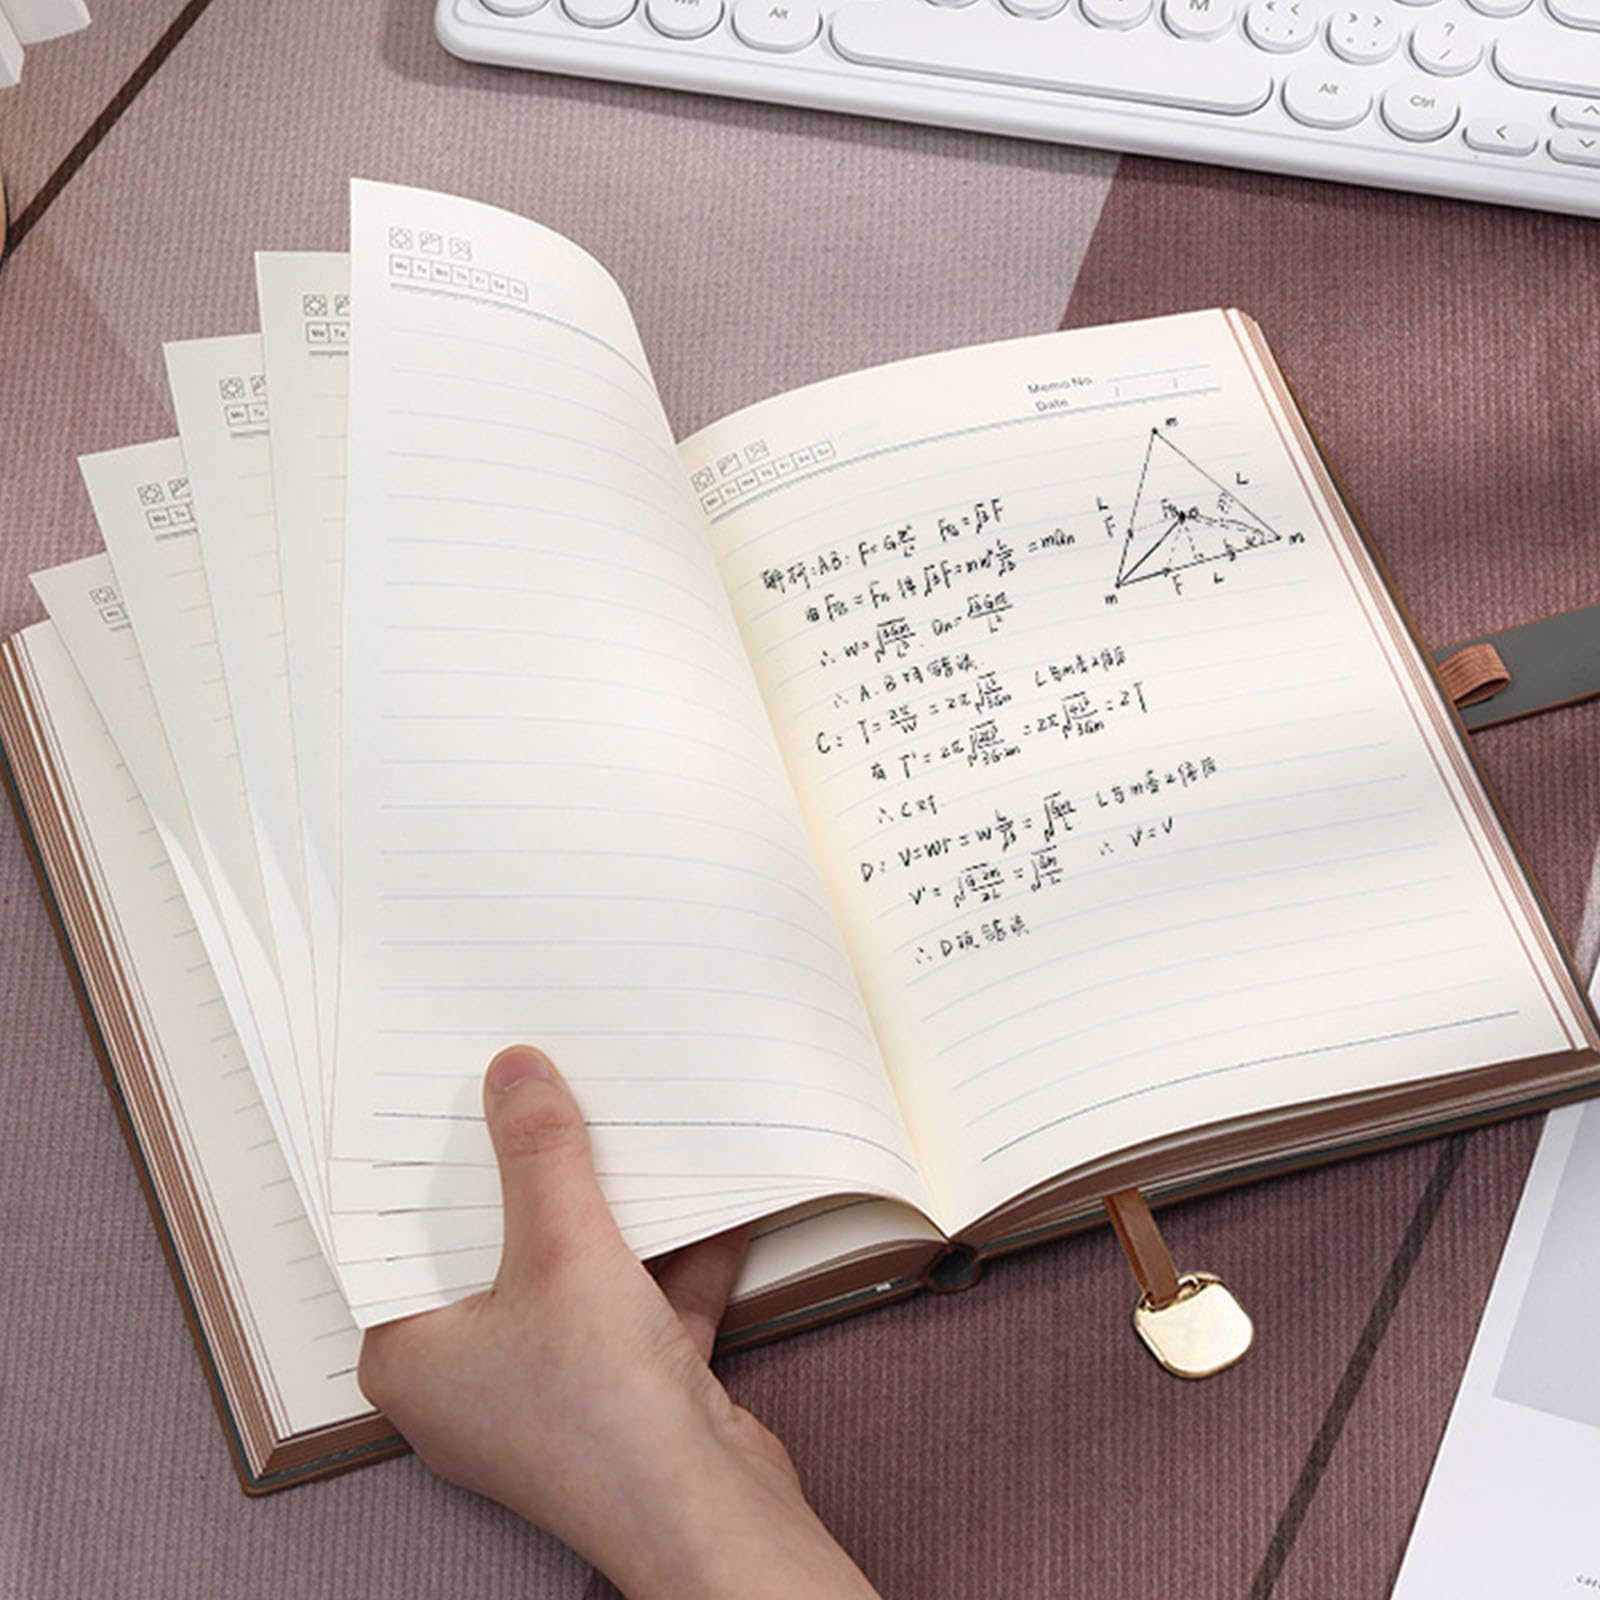 Win
Alt
M
?
/
Alt
Ctrl
Mo Tu We Th Fr Sa Su
Mo Tu
Mo Tu
Mo Tu
Memo No.
Date / /
Mo Tu We Th Fr Sa Su
解析: AB: F=G m²/L² F合=√3F
由F合=Fn 得 √3F=mw² L/√3 =man
∴ w=√(3Gm/L³) an=√3Gm/L²
∴ A.B项错误.
C: T=2π/w =2π√(L³/3Gm) L与m变2倍后
有 T'=2π√((2L)³/3G·2m) =2π√(4L³/3Gm) =2T
∴ C对.
D: V=wr=w L/√3 =√(Gm/L) L与m变2倍后
V'=√(G·2m/2L) =√(Gm/L) ∴ V'=V
∴ D项错误
m
L
L
F
F合
m
m
F
L